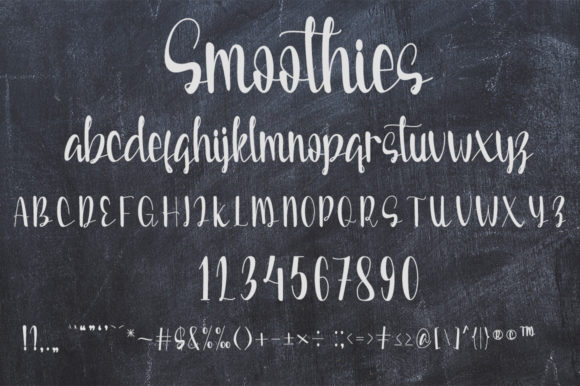 Smoothies
abcdefghijklmnopqrstuvwxyz
ABCDEFGHIJKLMNOPQRSTUVWXYZ
1234567890
!?,.„ ¨“”‘’`´*~#$&%‰()+-±×÷:;<=>≠≤≥@[\]^{|}®©™